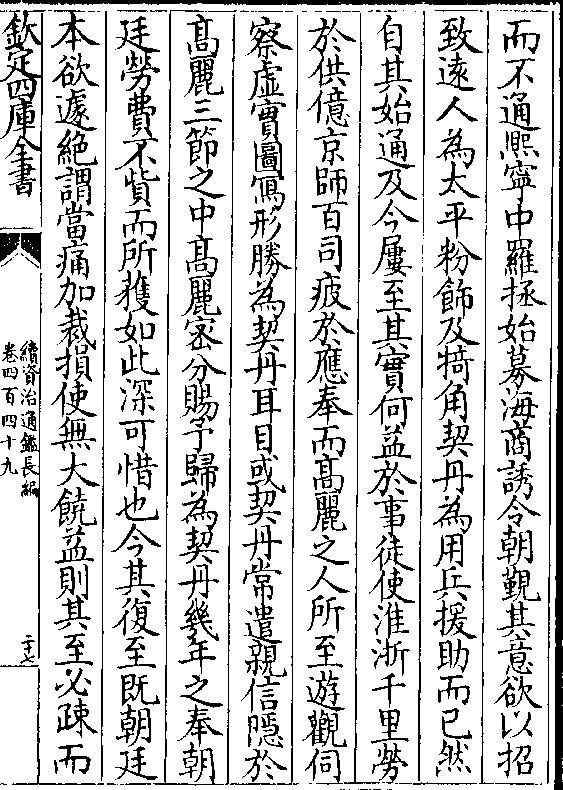 而不通熈寧中羅拯始募海商誘令朝覲其意欲以招
致逺人為太平粉飾及犄角契丹為用兵援助而已然
自其始通及今屢至其實何益於事徒使淮浙千里勞
於供億京師百司疲於應奉而髙麗之人所至遊觀伺
察虚實圖寫形勝為契丹耳目或契丹常遣親信隠於
髙麗三節之中髙麗宻分賜予歸為契丹幾年之奉朝
廷勞費不貲而所獲如此深可惜也今其復至既朝廷
本欲遽絶謂當痛加裁損使無大饒益則其至必疎而
欽定四庫全書
續資治通鑑長編
卷四百四十九
二十七